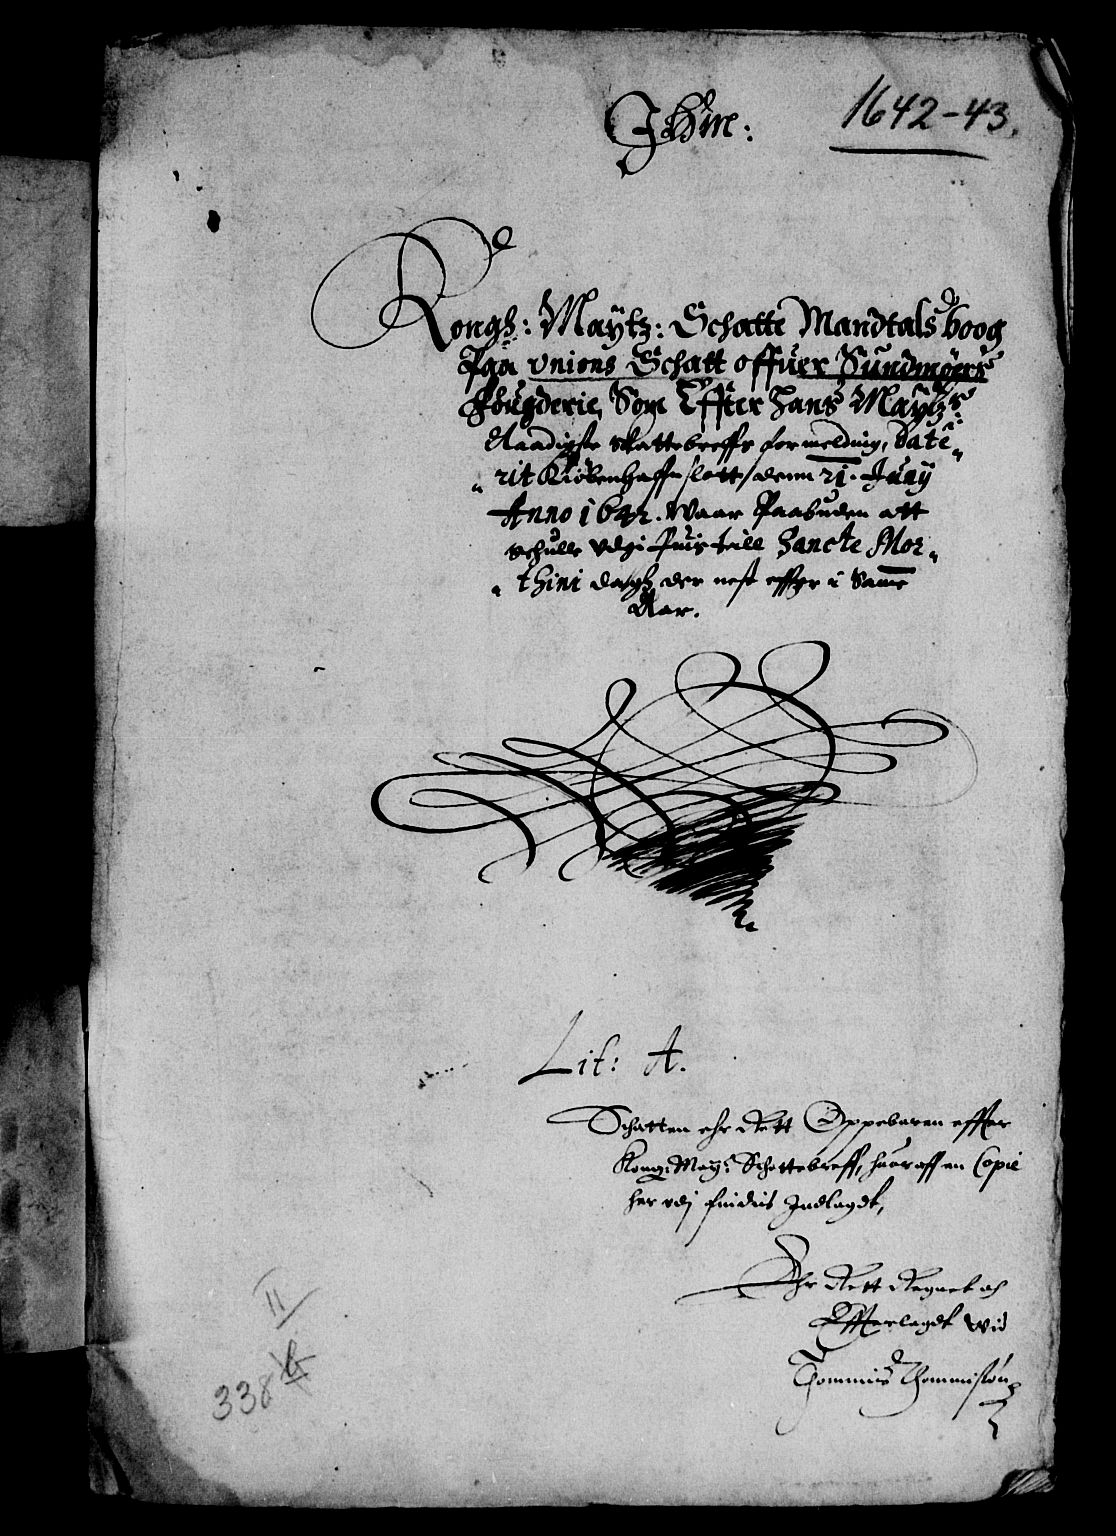 Jhūe:
1642-43.
Kongh: Maÿtz: Schatte Mandtals boog
Paa vnions Schatt offuer Sündmøers
Fougderie, Som Effter Hans Maÿtz:
Naadigste skattebreffs formelding, Date„
„rit Kiøbenhaffn slott, denn 21. Junÿ
Anno 1642. Waar Paabuden att
schulle vdgifuis till Sancte Mor„
„thini dagh der nest effter i Samme
Aar.
Lit: A.
Schatten ehr Rett Oppebaren effter
Kong: Maÿ: Schattebreff, huoraff en Copie
her vdj findis Indlagdt,
Ehr Rett Regnet och
Efterlagdt wid
Thommis Thommisøn
II
338